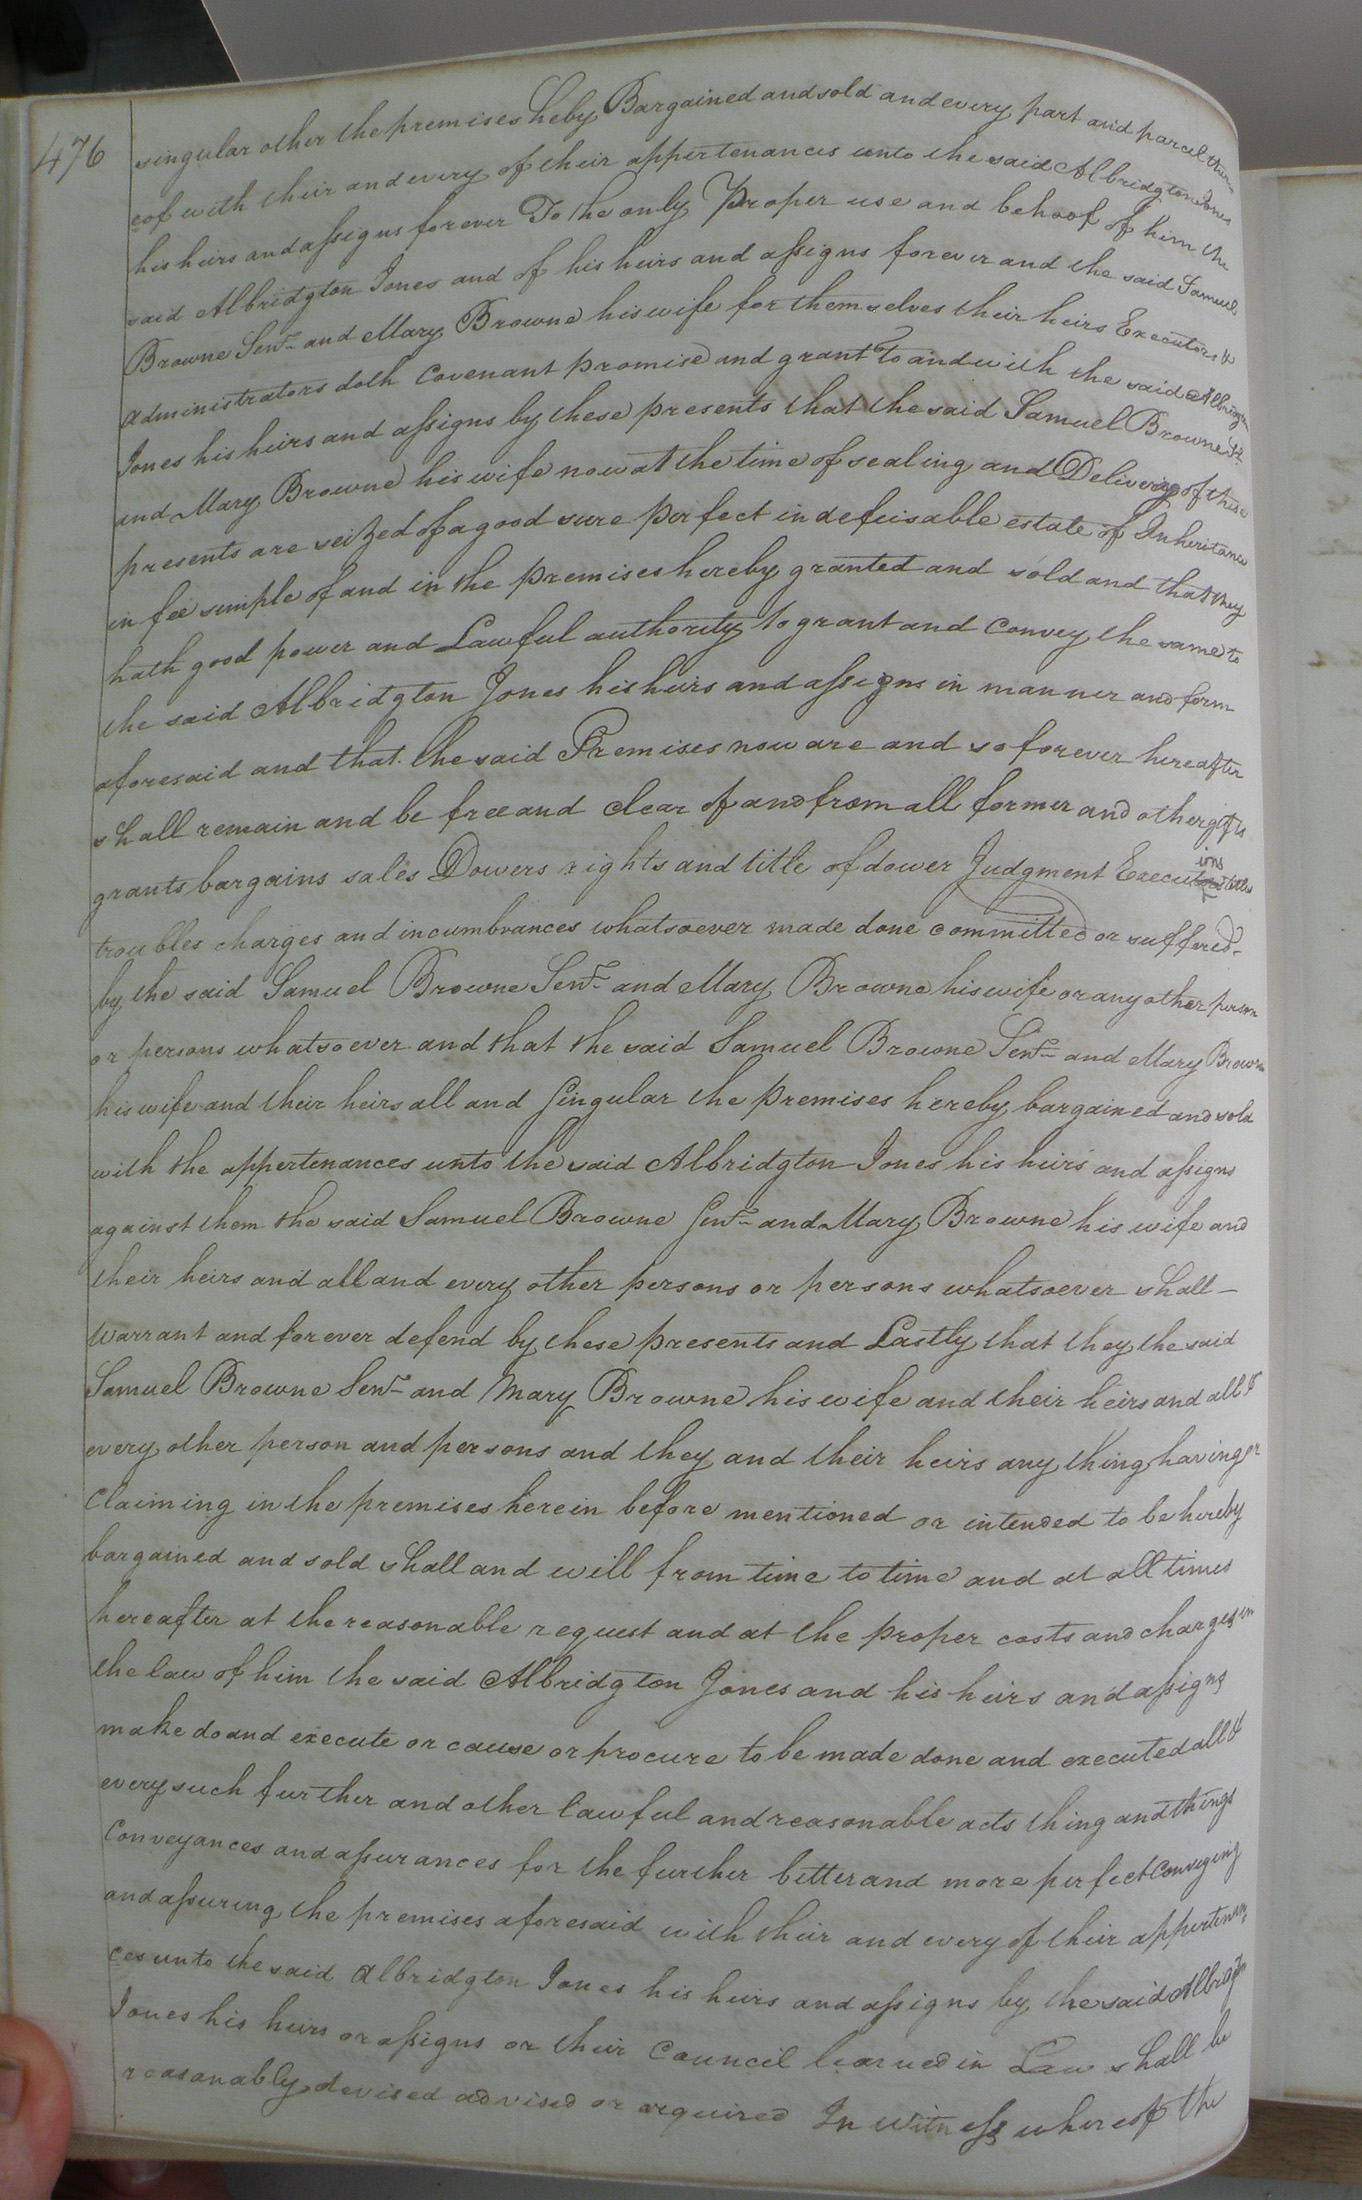 476
singular other the premises heby Bargained and sold and every part and parcel ther
eof with their and every of their appertenances unto the said Albridgton Jones
his heirs and assigns forever To the only Proper use and behoof of him the
said Albridgton Jones and of his heirs and assigns forever and the said Samuel
Browne Senr. and Mary Browne his wife for themselves their heirs Executors &
administrators doth Covenant promise and grant to and with the said Albridgton
Jones his heirs and assigns by these presents that the said Samuel Browne Sr.
and Mary Browne his wife now at the time of sealing and Delivery of these
presents are seized of a good sure perfect indefeisable estate of Inheritance
in fee simple of and in the premises hereby granted and sold and that they
hath good power and Lawful authority to grant and convey the same to
the said Albridgton Jones his heirs and assigns in manner and form
aforesaid and that the said Premises now are and so forever hereafter
shall remain and be free and clear of and from all former and other gifts
grants bargains sales Dowers rights and title of dower Judgment Executions titles
troubles charges and incumbrances whatsoever made done committed or suffered
by the said Samuel Browne Senr. and Mary Browne his wife or any other person
or persons whatsoever and that the said Samuel Browne Senr. and Mary Browne
his wife and their heirs all and Singular the premises hereby bargained and sold
with the appertenances unto the said Albridgton Jones his heirs and assigns
against them the said Samuel Browne Senr. and Mary Browne his wife and
their heirs and all and every other persons or persons whatsoever shall -
Warrant and forever defend by these presents and Lastly that they the said
Samuel Browne Senr. and Mary Browne his wife and their heirs and all &
every other person and persons and they and their heirs any thing having or
Claiming in the premises herein before mentioned or intended to be hereby
bargained and sold shall and will from time to time and at all times
hereafter at the reasonable request and at the proper costs and charges in
the law of him the said Albridgton Jones and his heirs and assigns
make do and execute or cause or procure to be made done and executed all &
every such further and other lawful and reasonable acts thing and things
Conveyances and assurances for the further better and more perfect Conveying
and assuring the premises aforesaid with their and every of their appertenan-
ces unto the said Albridgton Jones his heirs and assigns by the said Albridgton
Jones his heirs or assigns or their Council learned in Law shall be
reasonably devised advised or required In witness whereof the